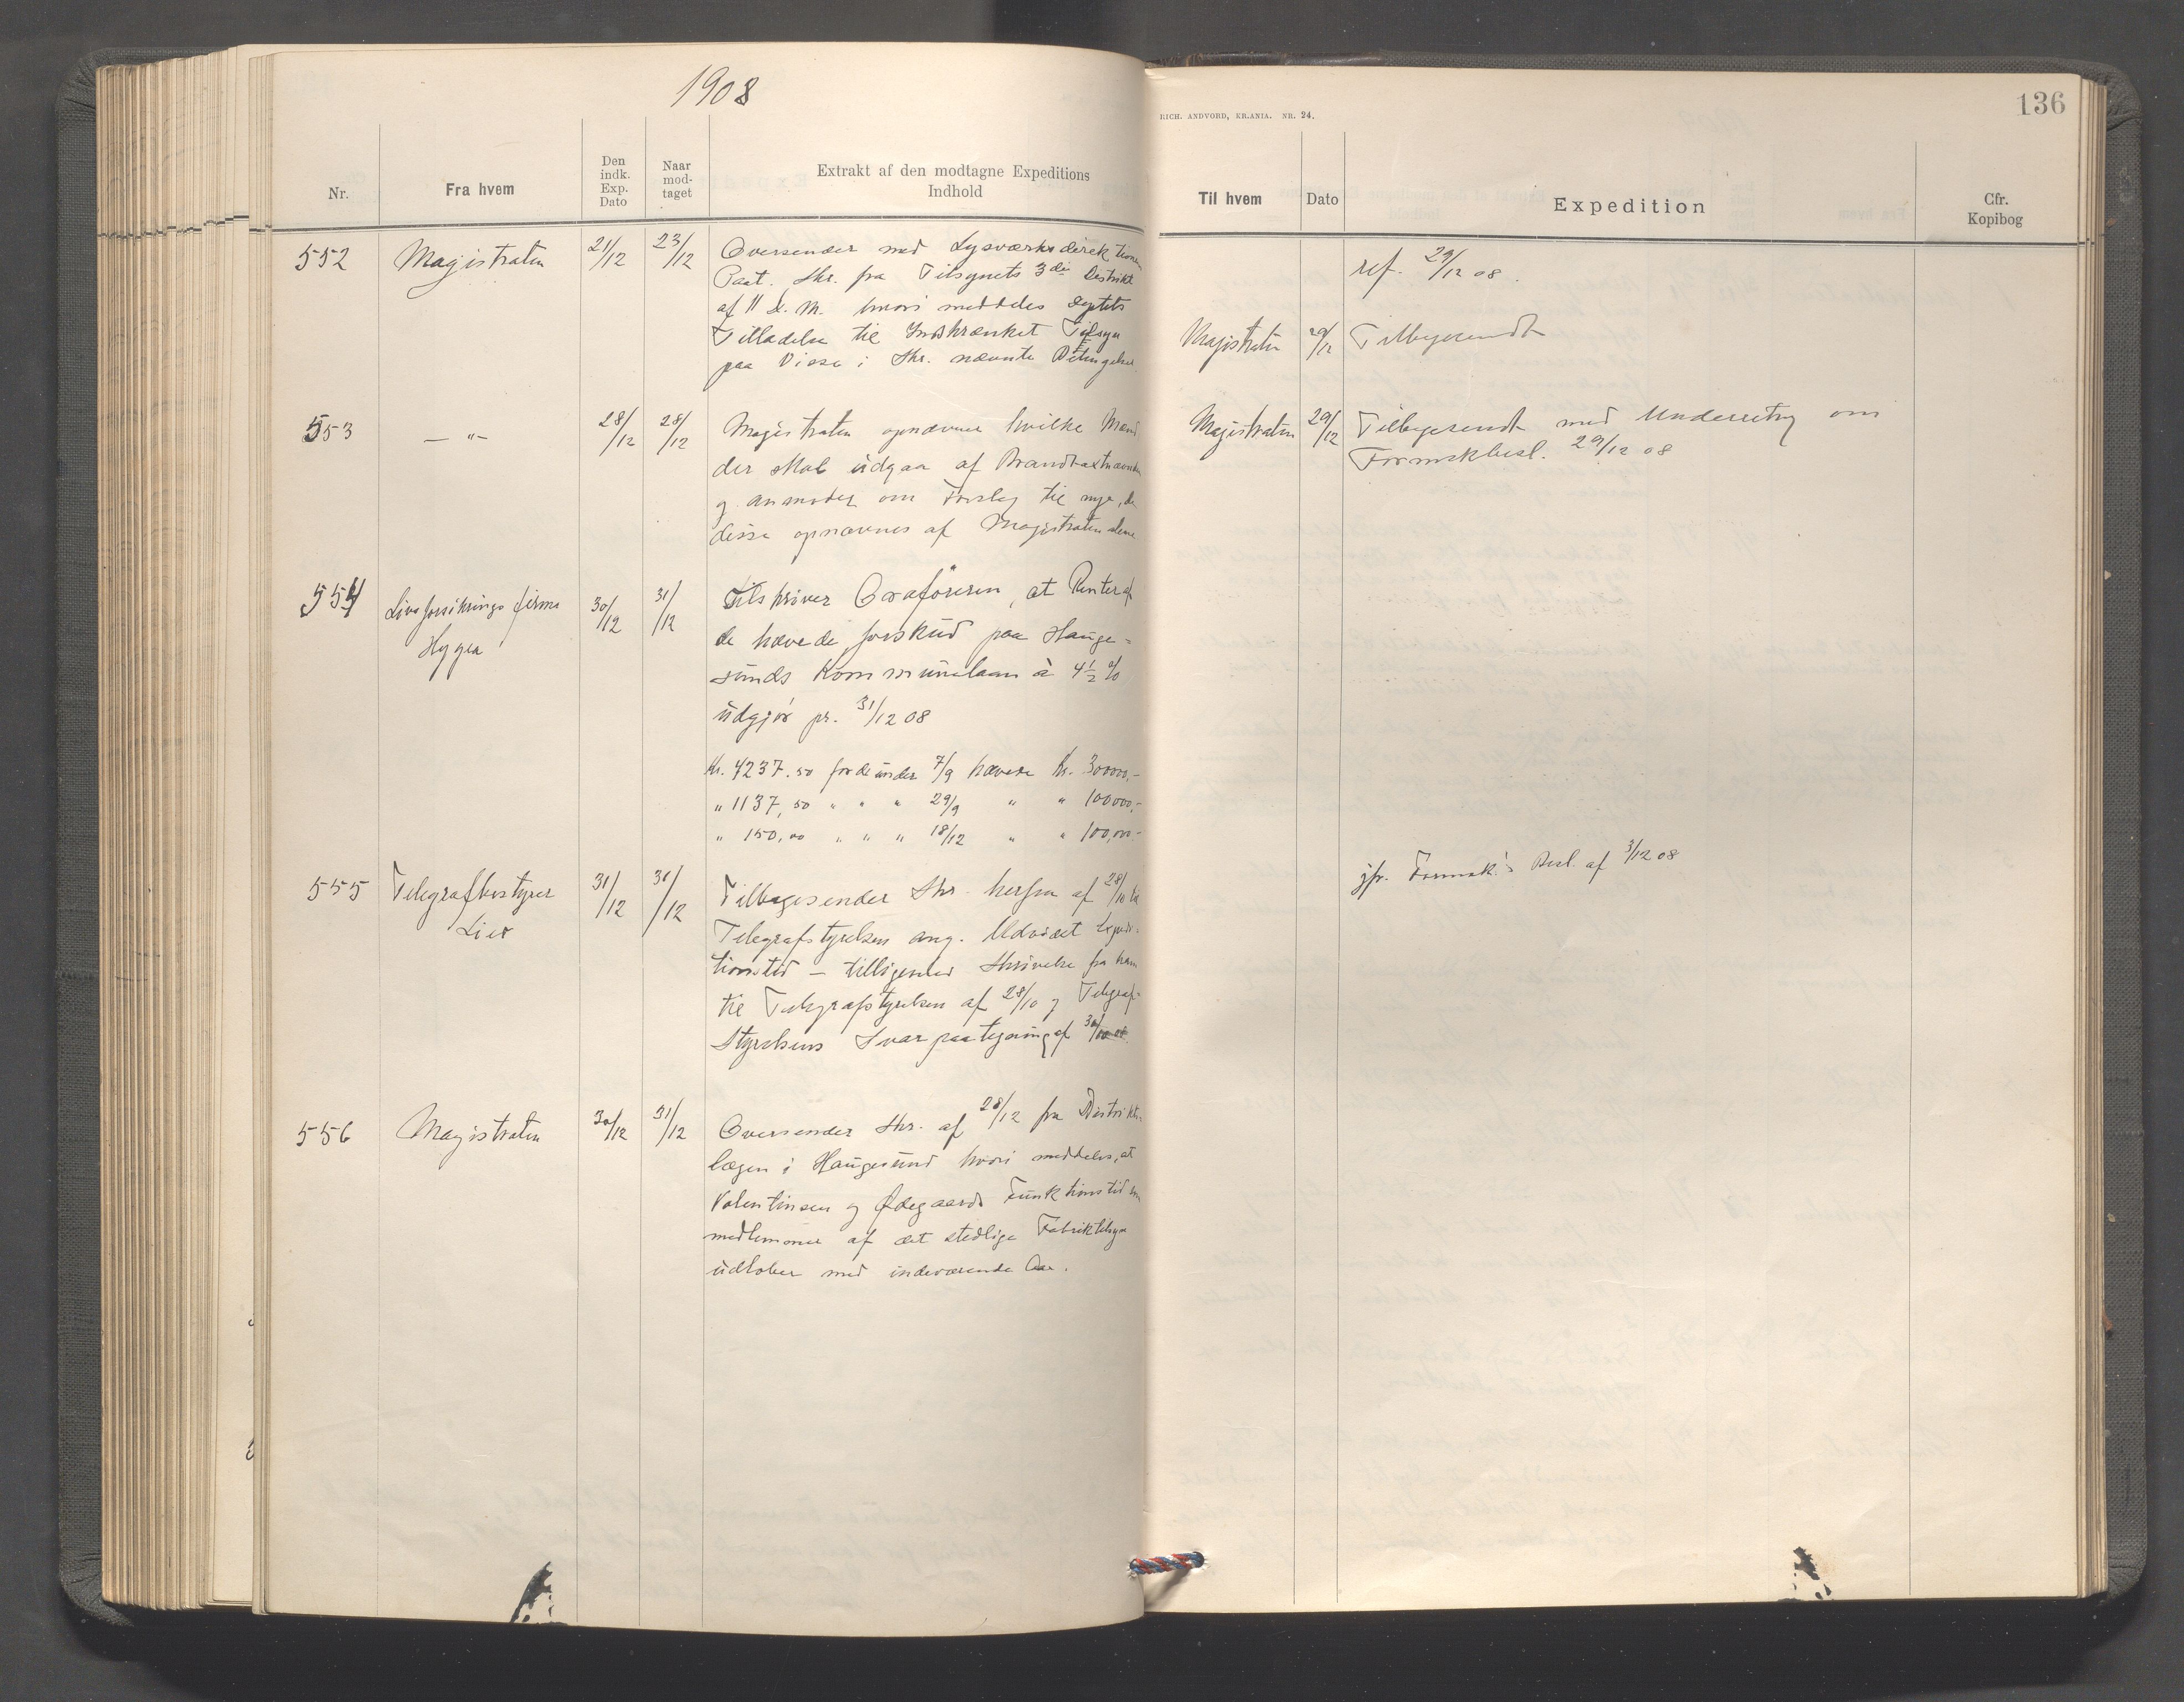 1908
136
RICH. ANDVORD, KR.ANIA. NR. 24.
Nr.
Fra hvem
Den indk. Exp. Dato
Naar mod- taget
Extrakt af den modtagne Expeditions Indhold
Til hvem
Dato
Expedition
Cfr. Kopibog
552 Magistraten 21/12 23/12
Oversender med Lysværksdirektionens
Paat. Skr. fra Tilsynets 3die Distrikt
af 11 d. M. hvori meddeles Deptets
Tilladelse til Indskrænket Tilsyn
paa Visse i Skr. nævnte Betingelser
ref. 29/12 08.
Magistraten 29/12 Tilbagesendt
553 — " — 28/12 28/12
Magistraten opnævner hvilke Mænd
der skal udgaa af Brandtaxtnævnden
og anmoder om Forslag til nye, da
disse opnævnes af Magistraten alene
Magistraten 29/12 Tilbagesendt med Underretng om
Formskbesl. 29/12 08
554 Livsforsikrings firma 30/12 31/12
Hygea
Tilskriver Ordføreren, at Renter af
de hævede forskud paa Hauge-
sunds Kommunelaan à 4 1/2 %
udgjør pr. 31/12 08
Kr. 4237.50 for de under 7/9 hævede Kr. 300000,-
" 1137,50 " " " 29/9 " " 100000,-
" 150,00 " " " 18/12 " " 100,000-
555 Telegrafbestyrer 31/12 31/12
Lier
Tilbagesender Skr. herfra af 28/10 til
Telegrafstyrelsen ang. Udvidet Expedi-
tionstid — tilligemed Skrivelse fra ham
til Telegrafstyrelsen af 28/10 og Telegraf-
Styrelsens Svarpaategning af
jfr. Formsk.'s Besl. af 3/12 08
556 Magistraten 30/12 31/12
Oversender Skr. af 28/12 fra Distrikts-
lægen i Haugesund hvori meddeles, at
Valentinsen og Ødegaards Funktionstid som
medlemmer af det stedlige Fabriktilsyn
udløber med indeværende Aar.